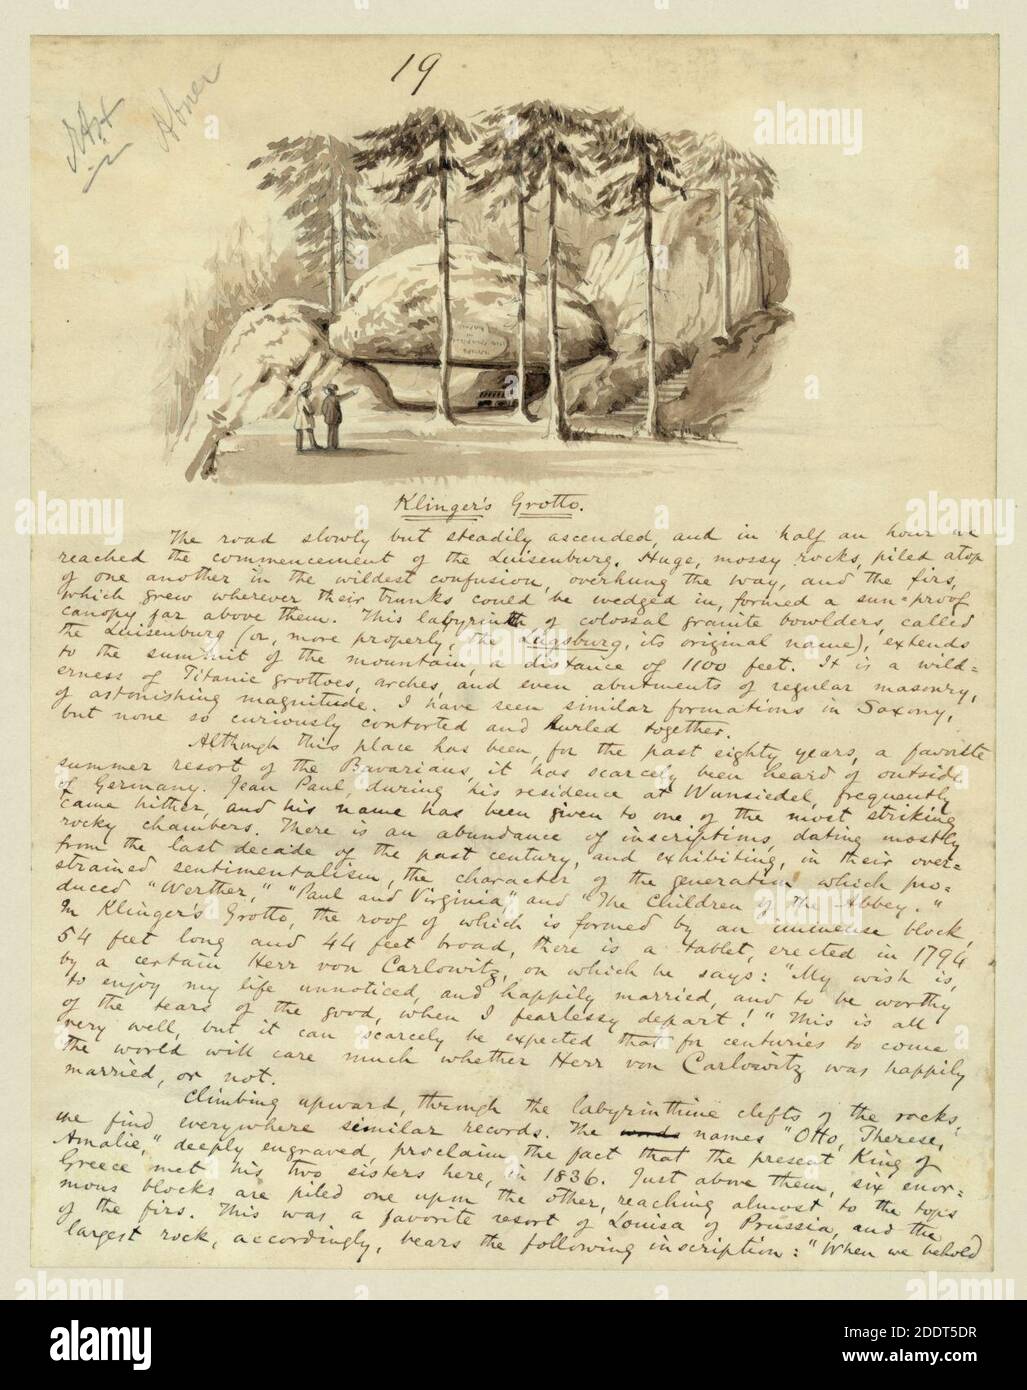 19
Art
Abner
Klinger's Grotto.
The road slowly but steadily ascended, and in half an hour we
reached the commencement of the Luisenburg. Huge, mossy rocks, piled atop
of one another in the wildest confusion, overhung the way, and the firs,
which grew wherever their trunks could be wedged in, formed a sun-proof
canopy far above them. This labyrinth of colossal granite bowlders, called
the Luisenburg (or, more properly, the Lugsburg, its original name), extends
to the summit of the mountain, a distance of 1100 feet. It is a wild-
erness of Titanic grottoes, arches, and even abutments of regular masonry,
of astonishing magnitude. I have seen similar formations in Saxony,
but none so curiously contorted and hurled together.
Although this place has been, for the past eighty years, a favorite
summer resort of the Bavarians, it has scarcely been heard of outside
of Germany. Jean Paul, during his residence at Wunsiedel, frequently
came hither, and his name has been given to one of the most striking
rocky chambers. There is an abundance of inscriptions, dating mostly
from the last decade of the past century, and exhibiting, in their over-
strained sentimentalism, the character of the generation which pro-
duced "Werther," "Paul and Virginia," and "The Children of the Abbey."
In Klinger's Grotto, the roof of which is formed by an immense block,
54 feet long and 44 feet broad, there is a tablet, erected in 1794
by a certain Herr von Carlowitz, on which he says: "My wish is,
to enjoy my life unnoticed, and happily married, and to be worthy
of the tears of the good, when I fearlessly depart!" This is all
very well, but it can scarcely be expected that for centuries to come
the world will care much whether Herr von Carlowitz was happily
married, or not.
Climbing upward, through the labyrinthine clefts of the rocks,
we find everywhere similar records. The words names "Otto, Therese,
Amalie," deeply engraved, proclaim the fact that the present King of
Greece met his two sisters here, in 1836. Just above them, six enor-
mous blocks are piled one upon the other, reaching almost to the tops
of the firs. This was a favorite resort of Louisa of Prussia, and the
largest rock, accordingly, bears the following inscription: "When we behold
alamy
Image ID: 2DDT5DR
www.alamy.com